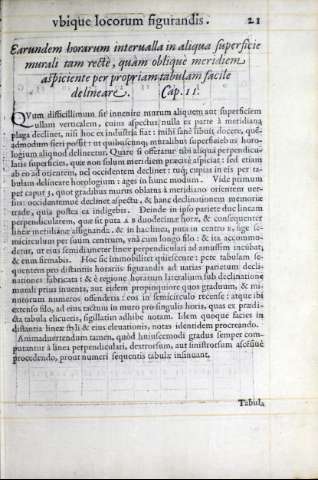 vbique locorum figurandis. 21
Earundem horarum interualla in aliqua superficie
murali tam rectè, quàm obliquè meridiem
aspiciente per propriam tabulam facile
delineare. Cap. 11.
QVum difficillimum sit inuenire murum aliquem aut superficiem
vllam verticalem, cuius aspectus nulla ex parte à meridiana
plaga declinet, nisi hoc ex industria fiat: mihi sanè subiit docere, quẽ-
admodum fieri possit: ut quibuscunq; muralibus superficiebus horo-
logium aliquod delineetur. Quare si offeratur tibi aliqua perpendicu-
laris superficies, quæ non solum meridiem præcisè aspiciat: sed etiam
ab eo ad orientem, uel occidentem declinet: tuq́; cupias in eis per ta-
bulam delineare horologium: ages in hunc modum. Vide primum
per caput 3, quot gradibus murus oblatus à meridiano orientem uer-
sus: occidentemue declinet aspectu, & hanc declinationem memoriæ
trade, quia postea est indigebis. Deinde in ipso pariete duc lineam
perpendicularem, quæ sit puta a b duodecimæ horæ, & consequenter
lineæ meridianæ assignanda. & in hac linea, puta in centro e, fige se-
micirculum per suum centrum, vnà cum longo filo: & ita accommo-
detur, ut eius semidiameter lineæ perpendiculari ad amussim incubat,
& eius firmabis. Hoc sic immobiliter quiescente: pete tabulam se-
quentem pro distantiis horariis figurandis ad uarias parietum decli-
nationes fabricata: & è regione horarum lateralium sub declinatione
murali prius inuenta, aut eidem propinquiore quos graduum, & mi-
nutorum numeros offenderis: eos in semicirculo recense: atque ibi
extenso filo, ad eius tactum in muro pro singulis horis, quas ex prædi-
cta tabula elicueris, sigillatim adhibe notam. Idem quoque facies in
distantia lineæ styli & eius eleuationis, notas identidem procreando.
Animaduertendum tamen, quòd huiuscemodi gradus semper com-
putantur à linea perpendiculari, dextrorsum, aut sinistrorsum ascẽsiuè
procedendo, prout numeri sequentis tabulæ insinuant.
Tabula